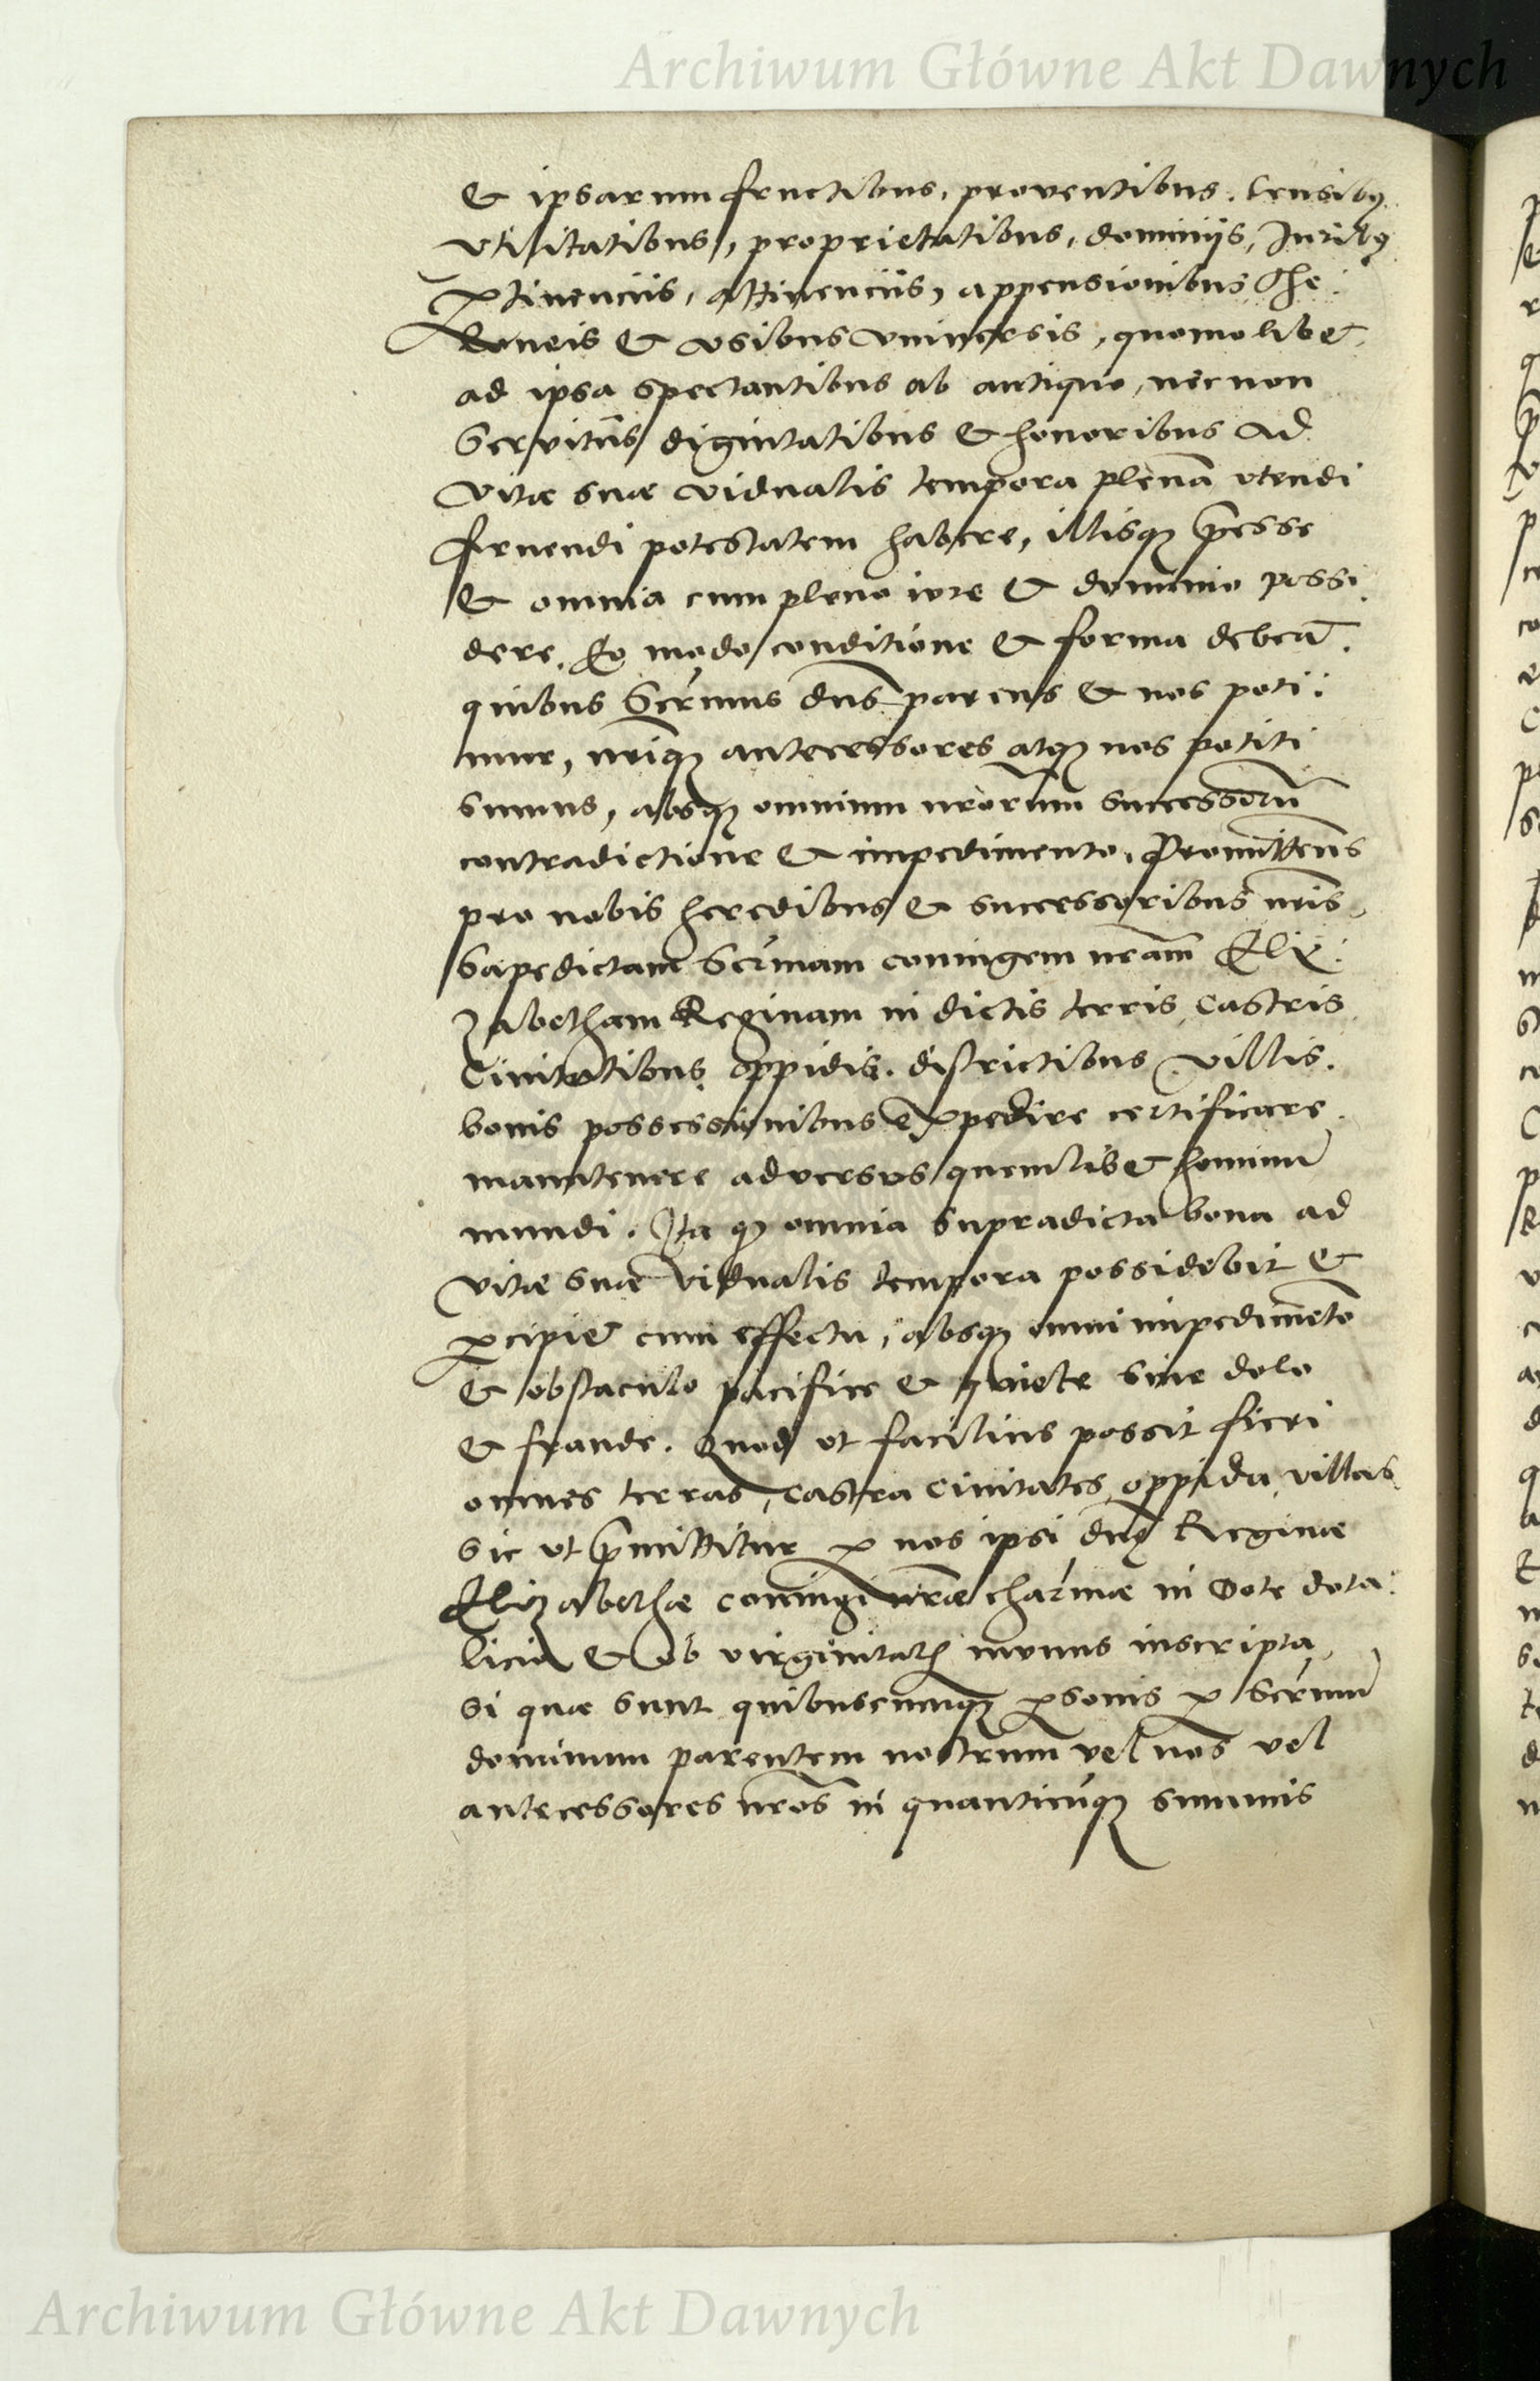 Archiwum Główne Akt Dawnych
& ipsarum fructibus, proventibus, censibꝰ
vtilitatibus, proprietatibus, dominijs, Iuribꝰ
ꝑtinenciis, attinenciis, appensionibus The:
loneis & vsibus vniversis, quomolibet
ad ipsa spectantibus ab antiquo, necnon
Servitūs dignitatibus & honoribus ad
vitæ suæ vidualis tempora plenā vtendi
fruendi potestatem habere, illisqꝫ p̄esse
& omnia cum pleno iure & dominio possi
dere, Eo modo conditione & forma debeat.
quibus Ser̄mus dn̄s parens & nos poti:
mur, nr̄iqꝫ antecessores atqꝫ nos potiti
sumus, absqꝫ omnium nr̄orum successorū
contradictione & impedimento. Promittens
pro nobis heredibus & successoribus nr̄is
Sæpedictam Ser̄mam coniugem nr̄am Eli:
zabetham Reginam in dictis terris castris
Civitatibus oppidis. districtibus villis.
bonis possessionibus expedire certificare
manutenere adversus quemlibet hominū
mundi. Ita qꝫ omnia supradicta bona ad
vitæ suæ vidualis tempora possidebit &
ꝑcipiet cum effectu, absqꝫ omni impedimēto
& obstaculo pacifice & quiete sine dolo
& fraude. Quod ut facilius possit fieri
omnes terras, castra civitates oppida villas
sic ut p̄mittitur ꝑ nos ipsi dn̄ę Reginæ
Elizabethæ coniugi nr̄æ char̄mæ in dote dota:
licia & ob virginitatꝭ munus inscripta,
si quæ sunt quibuscumqꝫ ꝑsonis ꝑ Ser̄mū
dominum parentem nostrum vel nos vel
antecessores nr̄os in quanticūqꝫ summis
Archiwum Główne Akt Dawnych